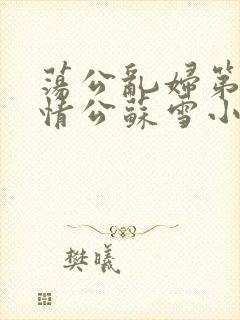 蕩公亂婦第
情公蘇雪小
樊曦